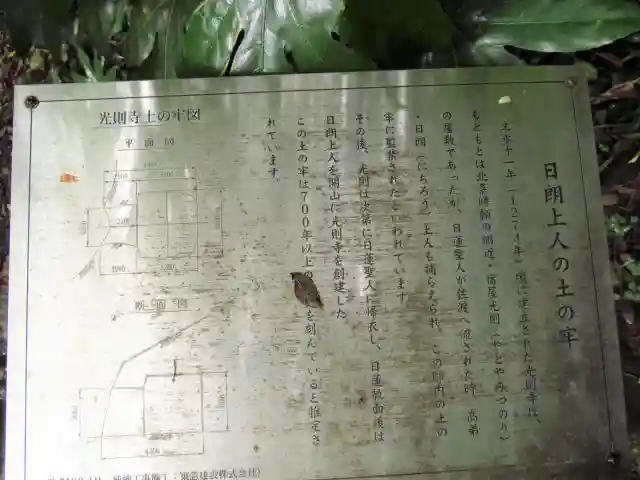 日朗上人の土の牢
文永十一年(1274年)頃に建立された光則寺は、
もともとは北条時頼の側近・宿屋光則(やどや みつのり)
の屋敷であったが、日蓮聖人が佐渡へ流された時、高弟
・日朗(にちろう)上人も捕らえられ、この邸内の土の
牢に監禁されたといわれています。
その後、光則は次第に日蓮聖人に帰依し、日蓮赦面後は
日朗上人を開山に光則寺を創建した
この土の牢は700年以上の を刻んでいると推定さ
れています。
光則寺土の牢図
平面図
断面図